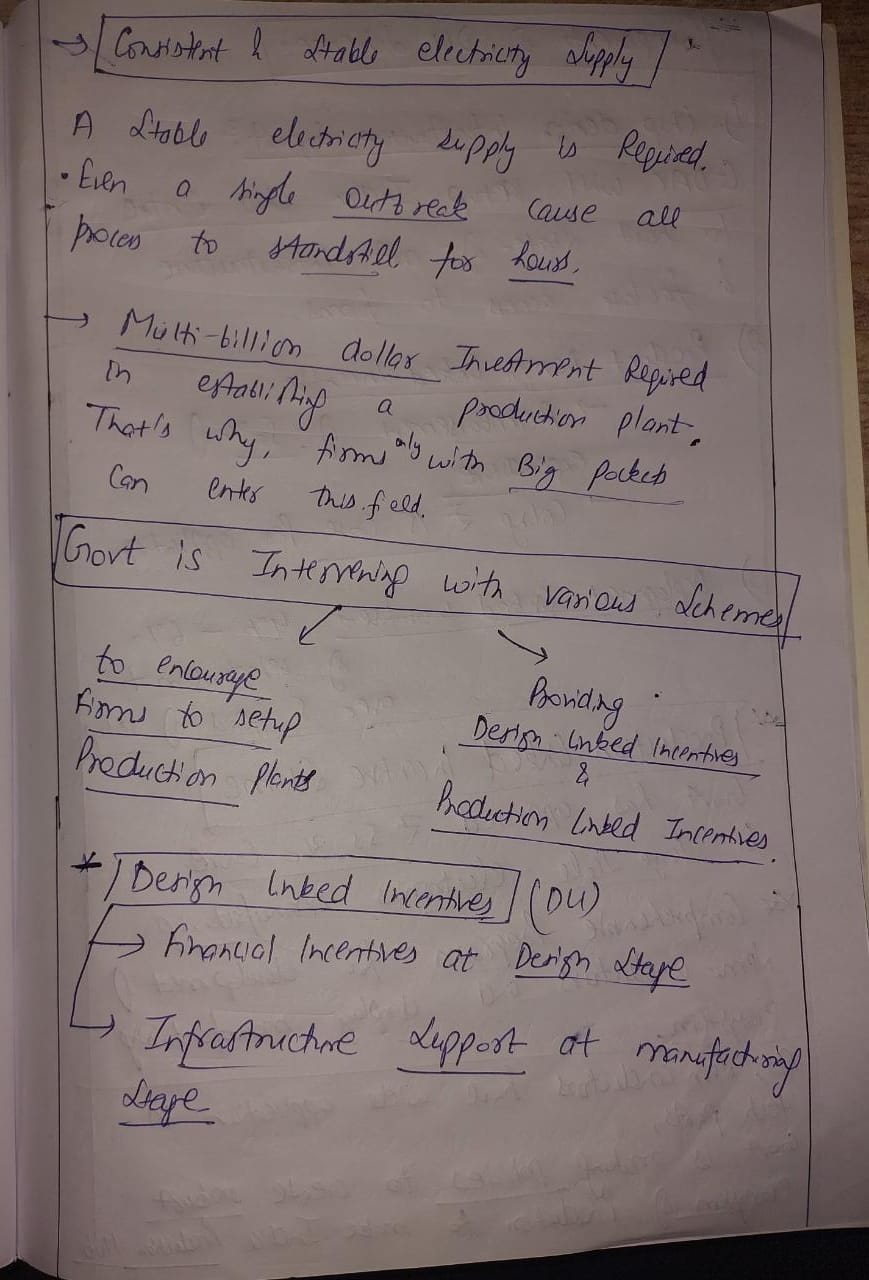 → Consistent & stable electricity supply
A stable electricity supply is Required.
• Even a single outbreak cause all
process to standstill for hours.
→ Multi-billion dollar Investment Required
in establishing a production plant.
That's why, firms only with Big Pockets
Can enter this field.
Govt is Intervening with various Schemes
to encourage
firms to setup
Production Plants
Providing
Design linked Incentives
&
Production linked Incentives.
* Design linked Incentives (DLI)
→ Financial Incentives at Design stage
→ Infrastructure support at manufacturing
stage